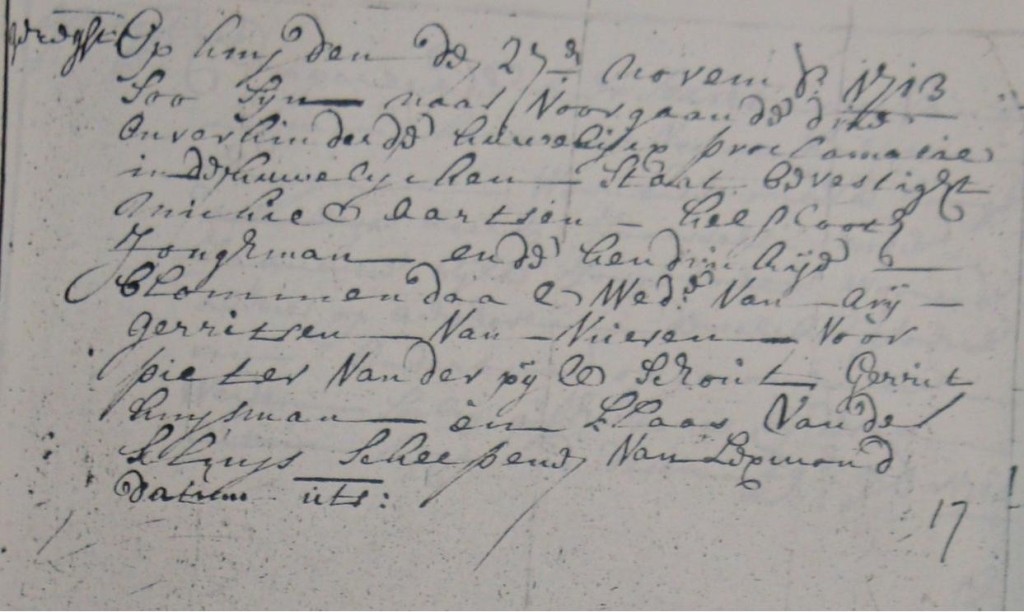 Op huyden de 27e Novemb. 1713
Soo Syn naar Voorgaande drie
onverhinderde huwelijx proclamatie
in de huwelycken Staat bevestight
Michiel Aartsen
Jonghman ende Hendrickije
Blommendaal Wede Van Arij
Gerritsen Van Vueren Voor
pieter Van der pijll Schout, Gerrit
huijsman en Klaas Van der
Sluys Scheepens Van Lexmond
datum uts:
17